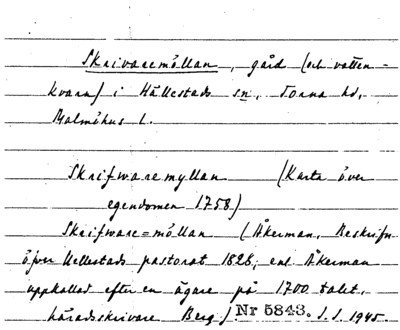 Skrivaremöllan, gård (och vatten-
kvarn) i Hällestads sn, Torna hd,
Malmöhus l.
Skrifwaremyllan (Karta över
egendomen 1758)
Skrifware=möllan (Åkerman, Beskrifn
öfver Hellestads pastorat 1828; enl Åkerman
uppkallad efter en ägare på 1700 talet,
häradsskrivare Berg) Nr 5843. J.J. 1945.